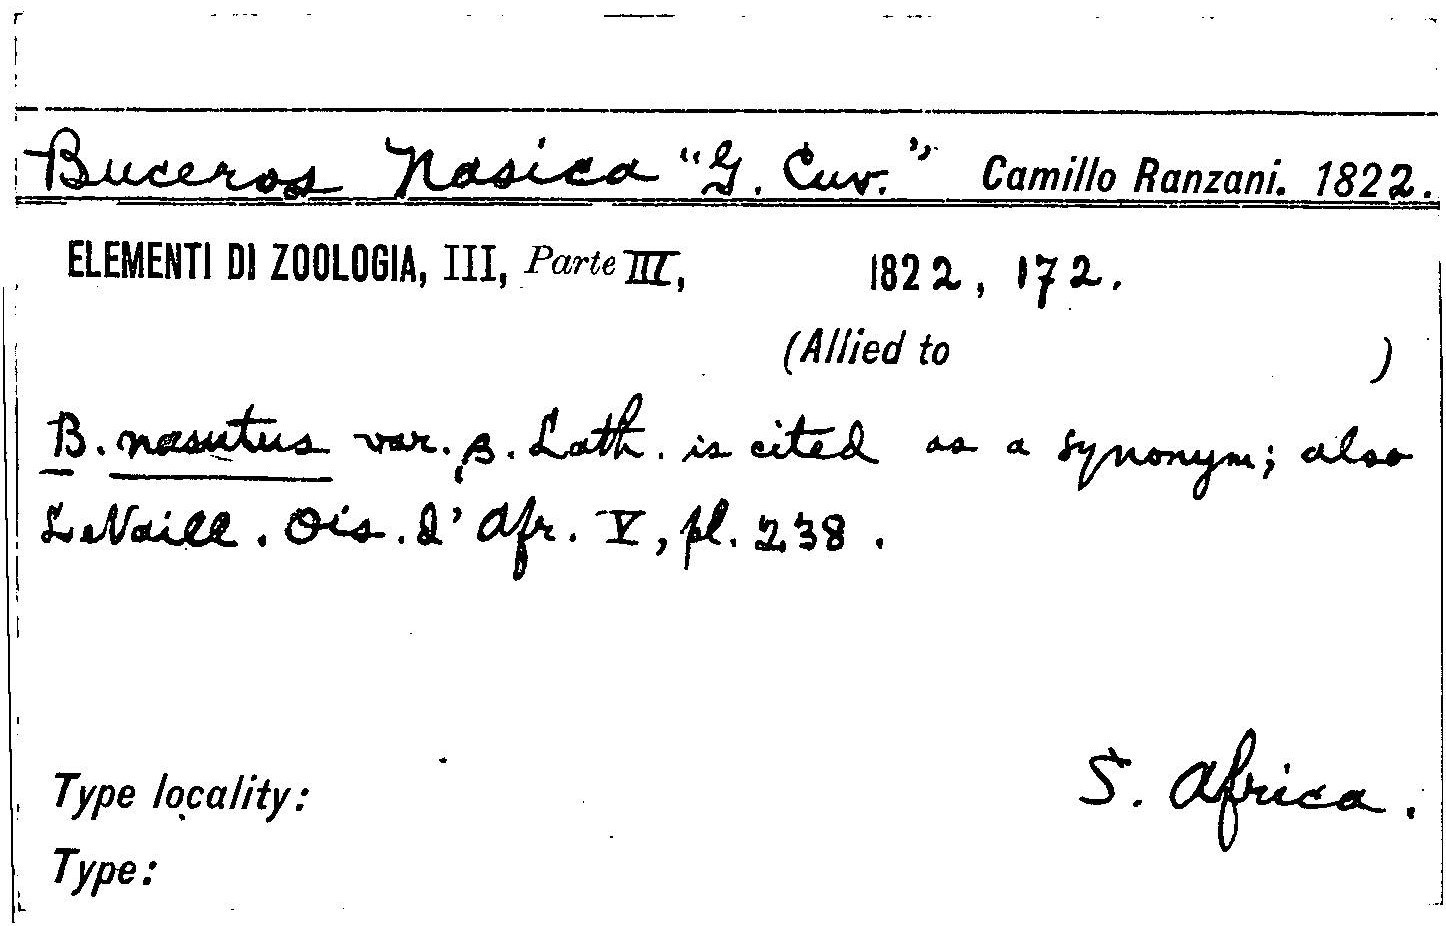 Buceros Nasica "G. Cuv." Camillo Ranzani. 1822.
ELEMENTI DI ZOOLOGIA, III, Parte III, 1822, 172.
(Allied to )
B. nasutus var. β. Lath. is cited as a synonym; also
LeVaill. Ois. d'Afr. V, pl. 238.
Type locality: S. Africa.
Type: